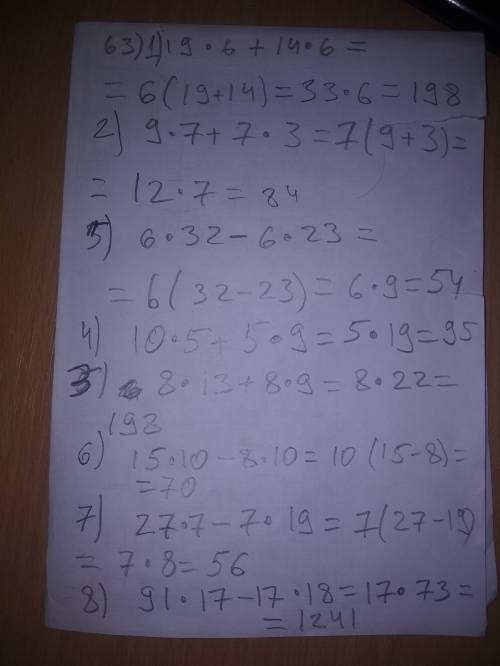 63) 1) 19 · 6 + 14 · 6 =
= 6(19+14) = 33 · 6 = 198
2) 9 · 7 + 7 · 3 = 7(9+3) =
= 12 · 7 = 84
5) 6 · 32 - 6 · 23 =
= 6(32-23) = 6 · 9 = 54
4) 10 · 5 + 5 · 9 = 5 · 19 = 95
3) 8 · 13 + 8 · 9 = 8 · 22 =
198
6) 15 · 10 - 8 · 10 = 10(15-8) =
= 70
7) 27 · 7 - 7 · 19 = 7(27-19)
= 7 · 8 = 56
8) 91 · 17 - 17 · 18 = 17 · 73 =
= 1241